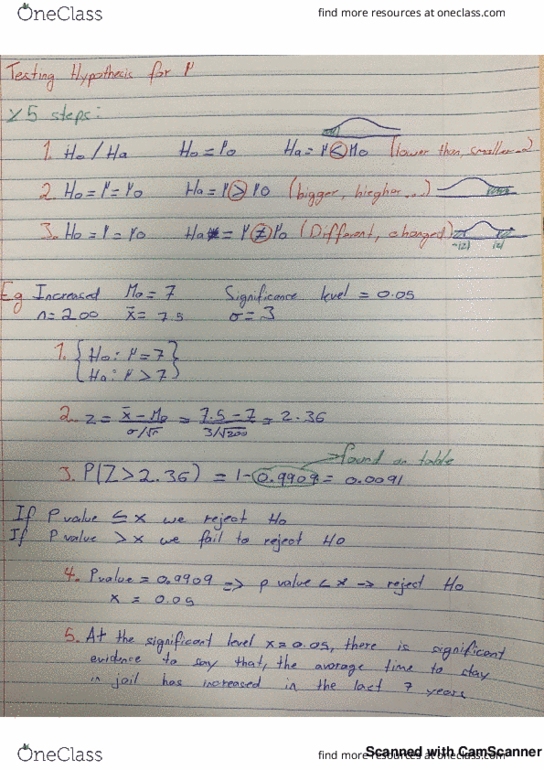 OneClass
find more resources at oneclass.com
Testing Hypothesis for μ
5 steps:
1. Ho / Ha Ho = μo Ha = μ < Mo (lower than, smaller...)
2. Ho = μ = μo Ha = μ > μo (bigger, hieghar...)
3. Ho = μ = μo Ha = μ ≠ μo (Different, changed) -|z| |z|
Eg Increased Mo = 7 Significance level = 0.05
n = 200 x̄ = 7.5 σ = 3
1. { Ho: μ = 7 }
{ Ha: μ > 7 }
2. z = x̄ - Mo / σ/√n = 7.5 - 7 / 3/√200 = 2.36
found on table
3. P(Z > 2.36) = 1 - 0.9909 = 0.0091
If P value ≤ x we reject Ho
If P value > x we fail to reject Ho
4. Pvalue = 0.9909 => p value < x -> reject Ho
x = 0.05
5. At the significant level x = 0.05, there is significant
evidence to say that, the average time to stay
in jail has increased in the last 7 years
OneClass
find more resources at oneclass.com
Scanned with CamScanner